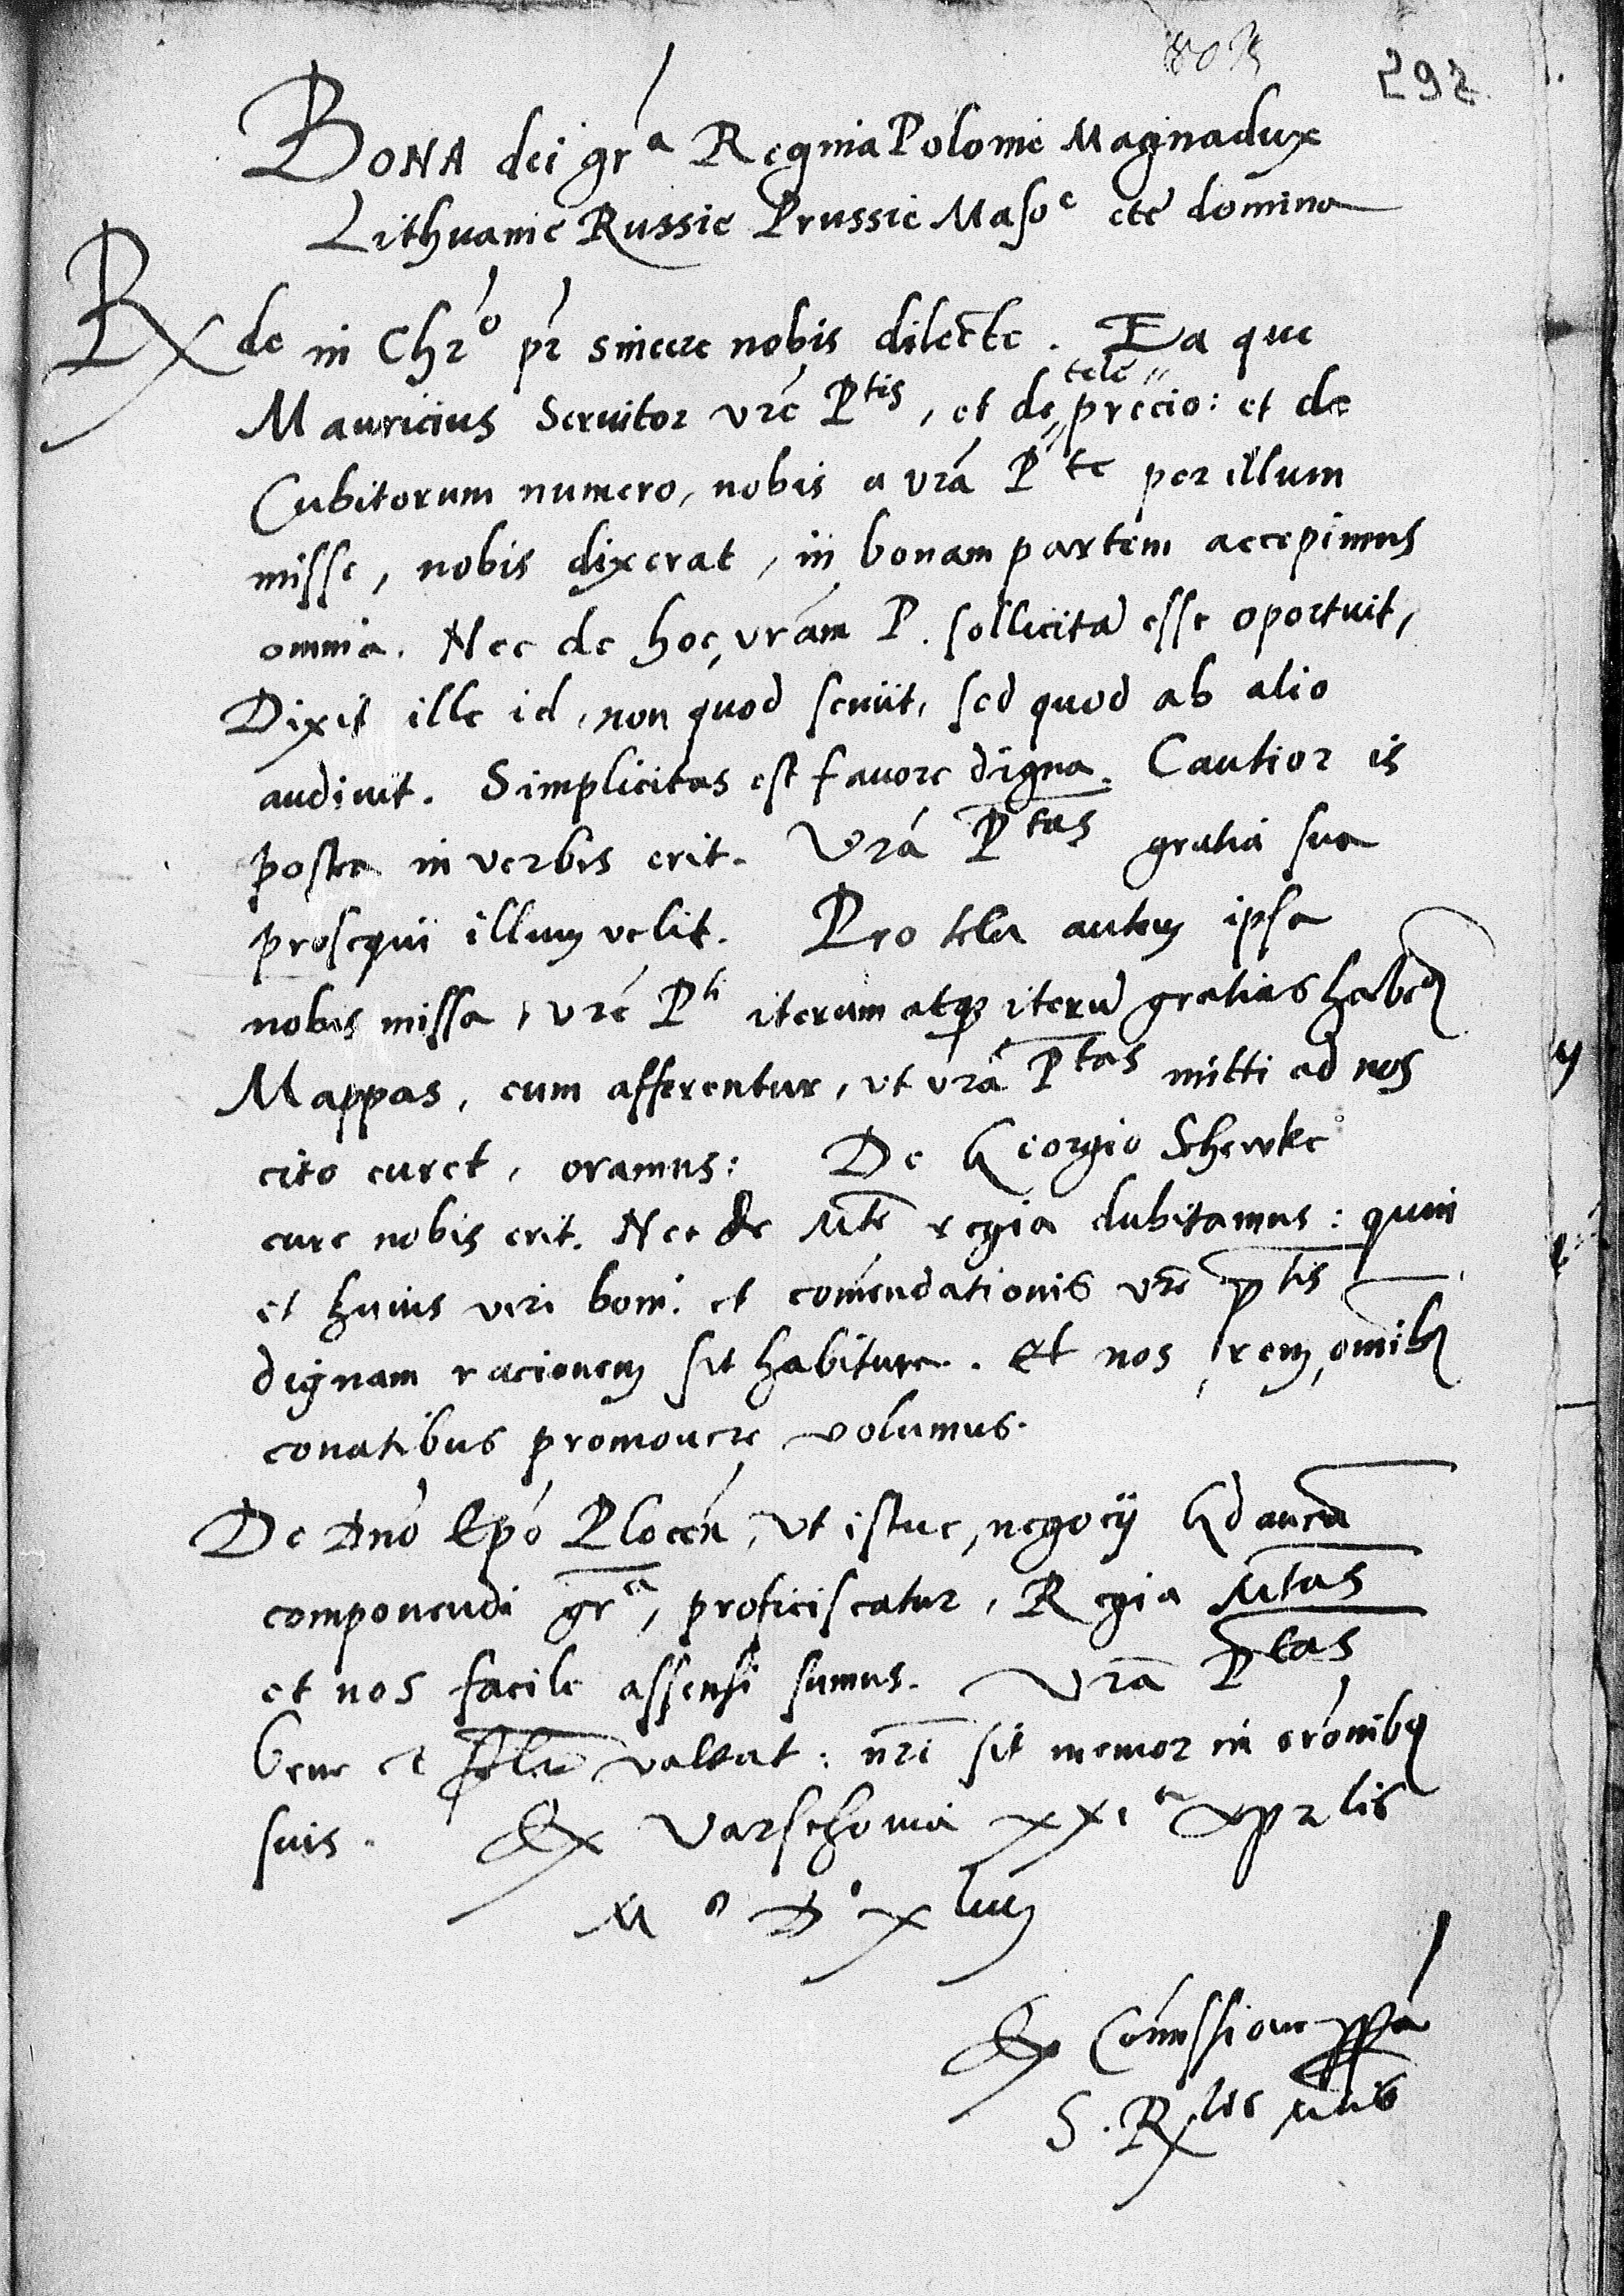 292
BONA dei gra Regina Polonie Magnadux
Lithuanie Russie Prussie Masoe etc domina
Rde in Chro pr sincere nobis dilecte. Ea que
Mauricius Servitor vre Ptis, et de tele precio: et de
Cubitorum numero, nobis a vra Pte per illum
misse, nobis dixerat, in bonam partem accepimus
omnia. Nec de hoc, vram P. sollicita esse oportuit,
Dixit ille id, non quod scivit, sed quod ab alio
audivit. Simplicitas est favore digna. Cautior is
postea in verbis erit. Vra Ptas gratia sua
prosequi illum velit. Pro tela autem ipsa
nobis missa, vre Pti iterum atq iteru gratias habem
Mappas, cum afferentur, ut vra Ptas mitti ad nos
cito curet, oramus: De Georgio Schewke
cure nobis erit. Nec de Mte regia dubitamus: quin
et huius viri boni et comendationis vre Ptis
dignam racionem sit habitura. Et nos, rem, omib
conatibus promovere volumus.
De Dno Epo Plocen, ut istuc, negocij Gdanen
componendi gra, proficiscatur, Regia Mtas
et nos facile assensi sumus. Vra Ptas
bene et valeat: nri sit memor in oronibq
suis. Ex Varschovia xxia Aprlis
Mo Do xlvii
Ex Comissione ppa
S. Rlis Mtis